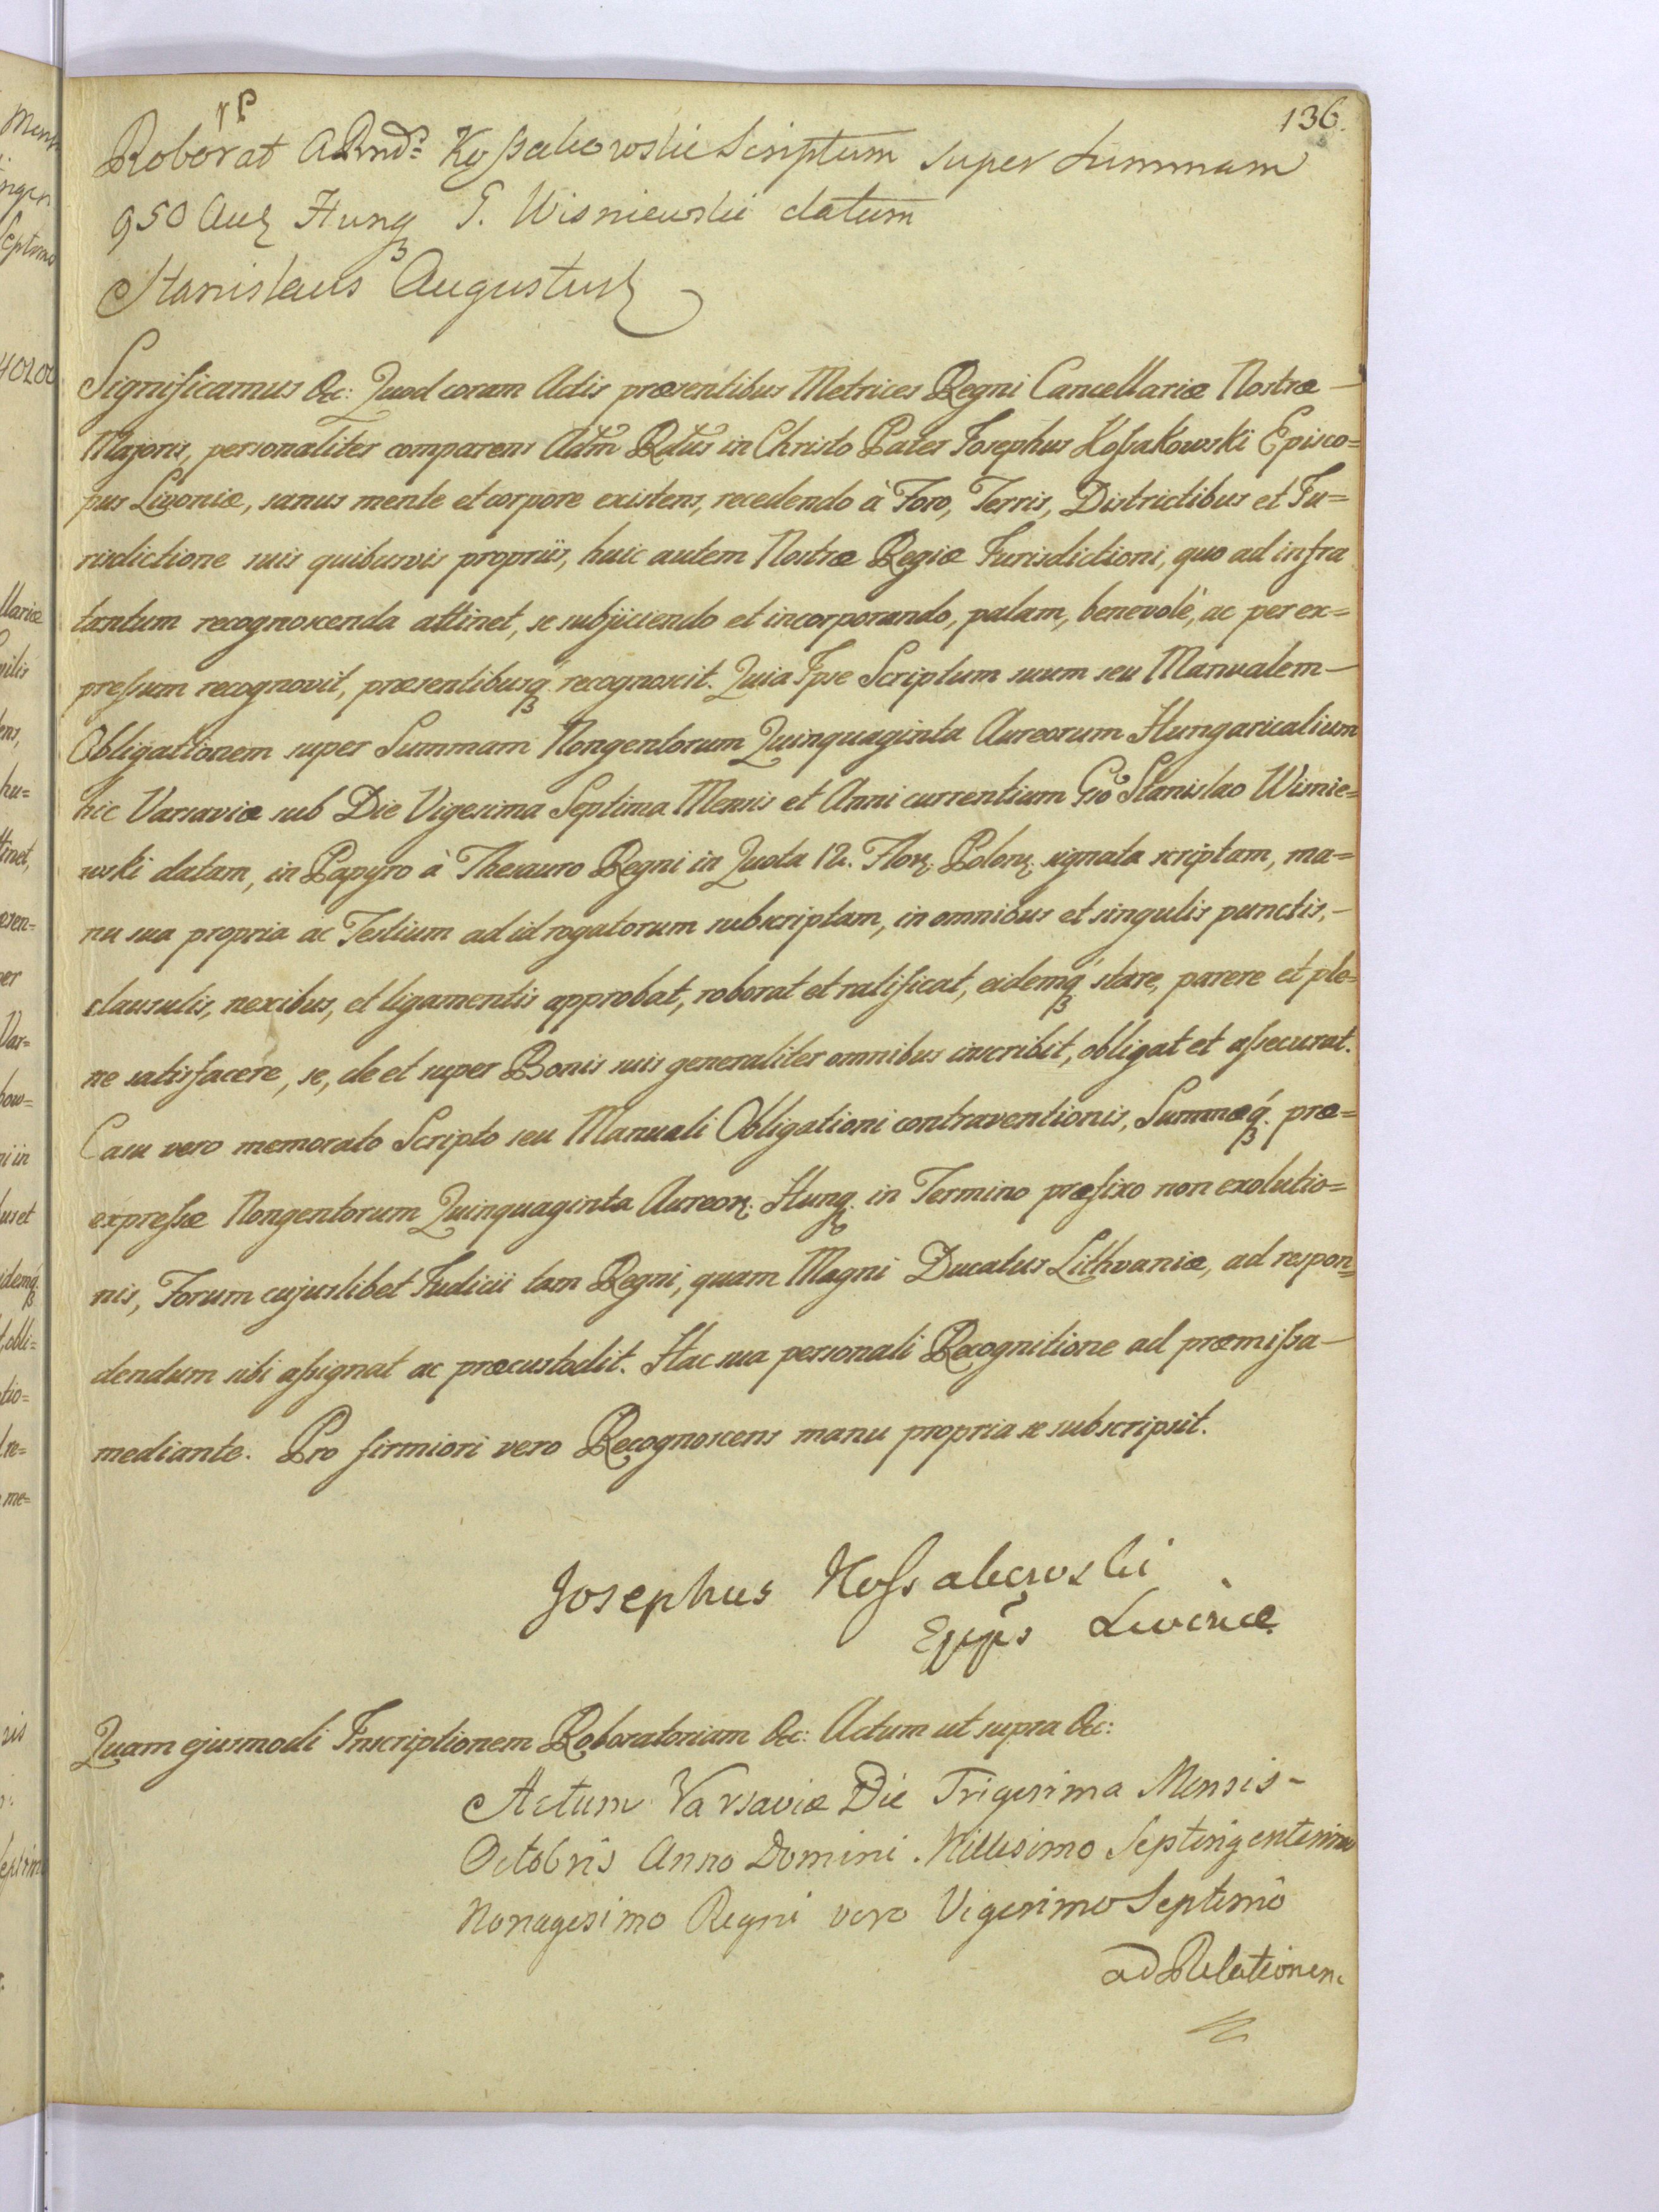 136.
Roborat A Rnd: Koßakowski Scriptum super Summam
950 Aur Hung G. Wisniewski datum
Stanislaus Augustus
Significamus &c: Quod coram Actis præsentibus Metrices Regni Cancellariæ Nostræ —
Majoris, personaliter comparens Adm Rdus in Christo Pater Josephus Koßakowski Episco=
pus Livoniæ, sanus mente et corpore existens, recedendo à Foro, Terris, Districtibus et Ju=
risdictione suis quibusvis propriis, huic autem Nostræ Regiæ Jurisdictioni, quo ad infra
tantum recognoscenda attinet, se subjiciendo et incorporando, palam, benevolè, ac per ex=
preßum recognovit, præsentibusq́ recognoscit. Quia Ipse Scriptum suum seu Manualem —
Obligationem super Summam Nongentorum Quinquaginta Aureorum Hungaricalium
hic Varsaviæ sub Die Vigesima Septima Mensis et Anni currentium Gso Stanislao Wisnie=
wski datam, in Papyro à Thesauro Regni in Quota 12. Flor. Polon. signata scriptam, ma=
nu sua propria ac Testium ad id rogatorum subscriptam, in omnibus et singulis punctis, —
clausulis, nexibus, et ligamentis approbat, roborat et ratificat, eidemq́ stare, parere et ple=
ne satisfacere, se, de et super Bonis suis generaliter omnibus inscribit, obligat et aßecurat.
Casu vero memorato Scripto seu Manuali Obligationi contraventionis, Summæq́. præ=
expreßæ Nongentorum Quinquaginta Aureor. Hung. in Termino præfixo non exolutio=
nis, Forum cujuslibet Judicii tam Regni, quam Magni Ducatus Lithvaniæ, ad respon=
dendum sibi aßignat ac præcustodit. Hac sua personali Recognitione ad præmißa —
mediante. Pro firmiori vero Recognoscens manu propria se subscripsit.
Josephus Koßakowski
Eppus Livoniæ
Quam ejusmodi Inscriptionem Roboratoriam &c: Actum ut supra &c:
Actum Varsaviæ Die Trigesima Mensis —
Octobris Anno Domini Millesimo Septingentesimo
Nonagesimo Regni vero Vigesimo Septimo
ad Relationem